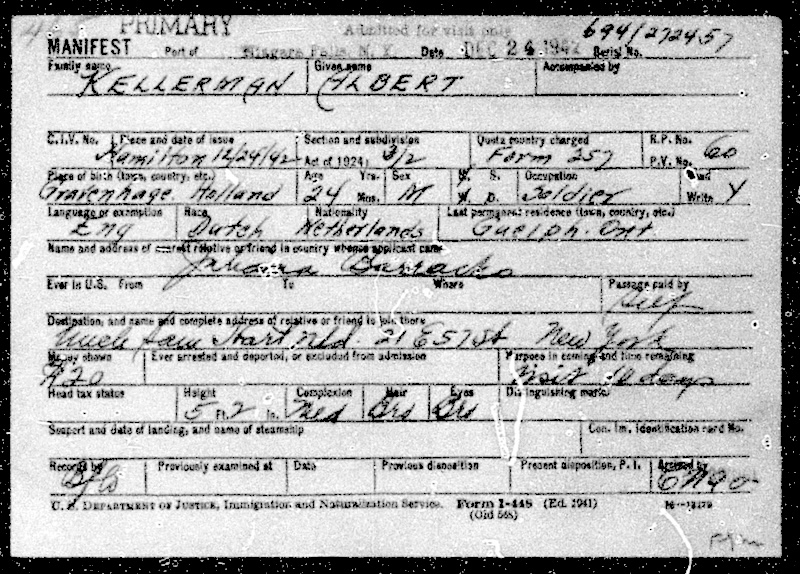 PRIMARY Admitted for visit only 694/272457
MANIFEST Port of Niagara Falls, N. Y. Date DEC 24 1942 Serial No.
Family name Given name Accompanied by
KELLERMAN ALBERT
C.I.V. No. Place and date of issue Section and subdivision Quota country charged R.P. No.
Hamilton 12/24/42 Act of 1924 3/2 Form 257 P.V. No. 60
Place of birth (town, country, etc.) Age Yrs. Sex M. S. Occupation Read
Gravenhage. Holland 24 Mos. M W. D. Soldier Write Y
Language or exemption Race Nationality Last permanent residence (town, country, etc.)
Eng Dutch Netherlands Guelph. Ont
Name and address of nearest relative or friend in country whence applicant came
Juliana Barracks
Ever in U.S. From To Where Passage paid by
Self
Destination, and name and complete address of relative or friend to join there
Uncle Sam Hart 21 E 57 St New York
Money shown Ever arrested and deported, or excluded from admission Purpose in coming and time remaining
$20 Visit 10 days
Head tax status Height Complexion Hair Eyes Distinguishing marks
5 Ft. 2 In. Med Bro Bro
Seaport and date of landing, and name of steamship Can. Im. Identification card No.
Records by Previously examined at Date Previous disposition Present disposition, P. I. Arrived by
U. S. DEPARTMENT OF JUSTICE, Immigration and Naturalization Service. Form I-448 (Ed. 1941)
(Old 548)